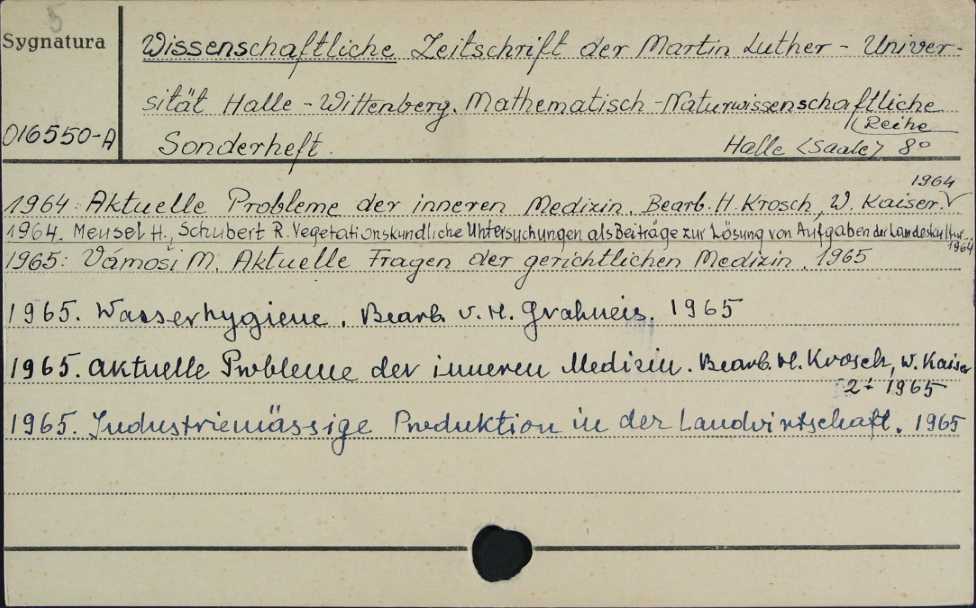 5
Sygnatura
Wissenschaftliche Zeitschrift der Martin Luther - Univer-
sität Halle - Wittenberg. Mathematisch - Naturwissenschaftliche
Reihe
016550-A
Sonderheft.
Halle <Saale> 8°
1964
1964: Aktuelle Probleme der inneren Medizin. Bearb. H. Krosch, W. Kaiser.
1964. Meusel H., Schubert R. Vegetationskundliche Untersuchungen als Beiträge zur Lösung von Aufgaben der Landeskultur..
1964
1965: Vámosi M. Aktuelle Fragen der gerichtlichen Medizin. 1965
1965. Wasserhygiene. Bearb. v. H. Grahneis. 1965
1965. Aktuelle Probleme der inneren Medizin. Bearb. H. Krosch, W. Kaiser
2. 1965
1965. Industriemässige Produktion in der Landwirtschaft. 1965